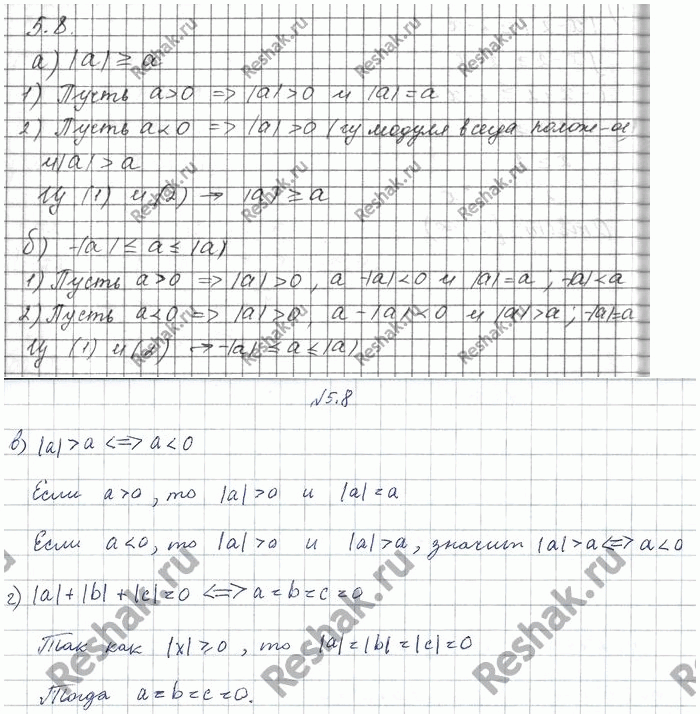 5.8.
а) |a| ≥ a
1) Пусть a>0 => |a|>0 и |a|=a
2) Пусть a<0 => |a|>0 (у модуля всегда полож-ое
и |a| > a
(1) и (2) → |a| ≥ a
б) -|a| ≤ a ≤ |a|
1) Пусть a>0 => |a|>0, a -|a|<0 и |a|=a; -|a|<a
2) Пусть a<0 => |a|>0, a -|a|<0 и |a|>a; -|a|=a
(1) и (2) → -|a| ≤ a ≤ |a|
№5.8
в) |a|>a <=> a<0
Если a>0, то |a|>0 и |a|=a
Если a<0, то |a|>0 и |a|>a, значит |a|>a <=> a<0
г) |a|+|b|+|c|=0 <=> a=b=c=0
Так как |x|≥0, то |a|=|b|=|c|=0
Тогда a=b=c=0.
Reshak.ru